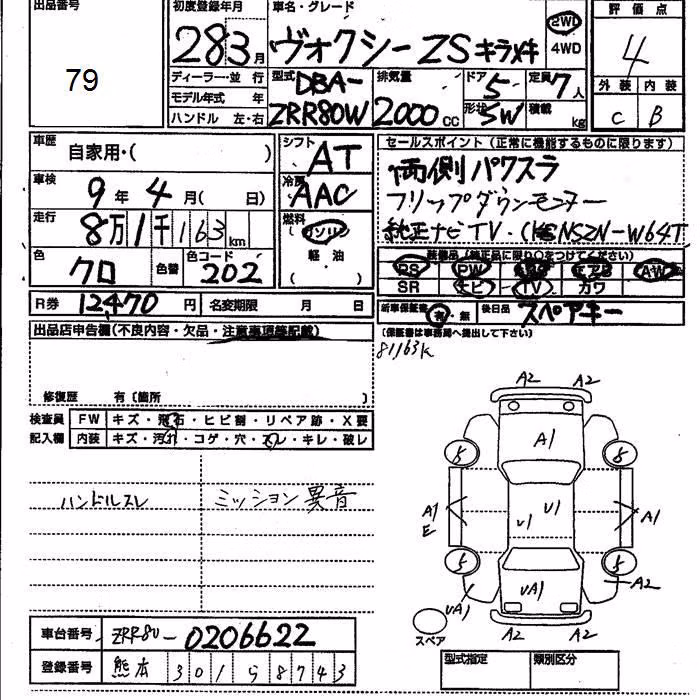 出品番号 初度登録年月 車名・グレード 評価点
79 28 3月 ヴォクシー ZS キラメキ 2WD 4WD 4
ディーラー・並行 型式 排気量 ドア 定員 外装 内装
DBA- 5 7人 C B
モデル年式 年 形状 積載
ハンドル 左・右 ZRR80W 2000cc SW kg
車歴 シフト セールスポイント(正常に機能するものに限ります)
自家用・( ) AT 両側パワスラ
車検 冷房
9年 4月( 日) AAC フリップダウンモニター
走行 燃料 純正ナビTV・ NSZN-W64T
8万1千163km ガソリン
軽油 装備品(純正品に限り○をつけてください)
色 色替 色コード PS PW AW
クロ 202 SR ナビ TV カワ
R券 12,470円 名変期限 月 日 新車保証書 有・無 後日品 スペアキー
出品店申告欄(不良内容・欠品・注意事項等記載) (保証書は事務局へ提出して下さい)
81163K
修復歴 有〔箇所 〕
検査員 FW キズ・飛石・ヒビ割・リペア跡・X要
記入欄 内装 キズ・汚れ・コゲ・穴・スレ・キレ・破レ
ハンドルスレ ミッション異音
A2 A2
A1
5 5
A1 E U1 U1 A1
5 5
UA1 UA1 A2
スペア A2 A2
車台番号 ZRR80-0206622
登録番号 熊本 301 ら 8743
型式指定 類別区分